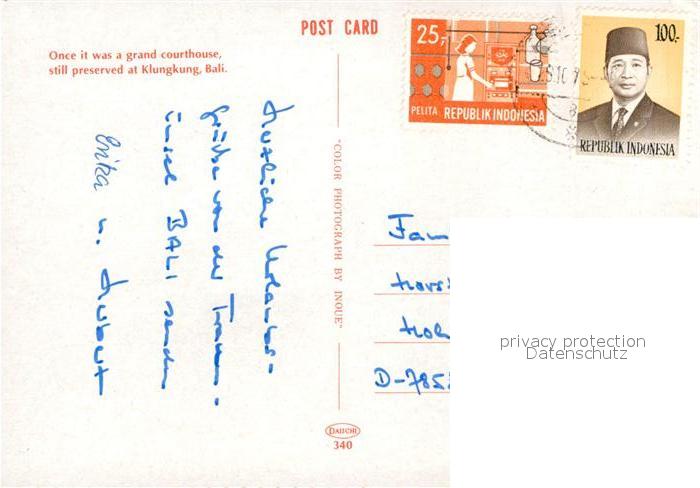 POST CARD
Once it was a grand courthouse,
still preserved at Klungkung, Bali.
25,-
PELITA REPUBLIK INDONESIA
100,-
REPUBLIK INDONESIA
Herzliche Urlaubs-
grüße von der Traum-
insel BALI senden
Erika u. Hubert
"COLOR PHOTOGRAPH BY INOUE"
DAIICHI
340
Fam
Horst
D-785
privacy protection
Datenschutz